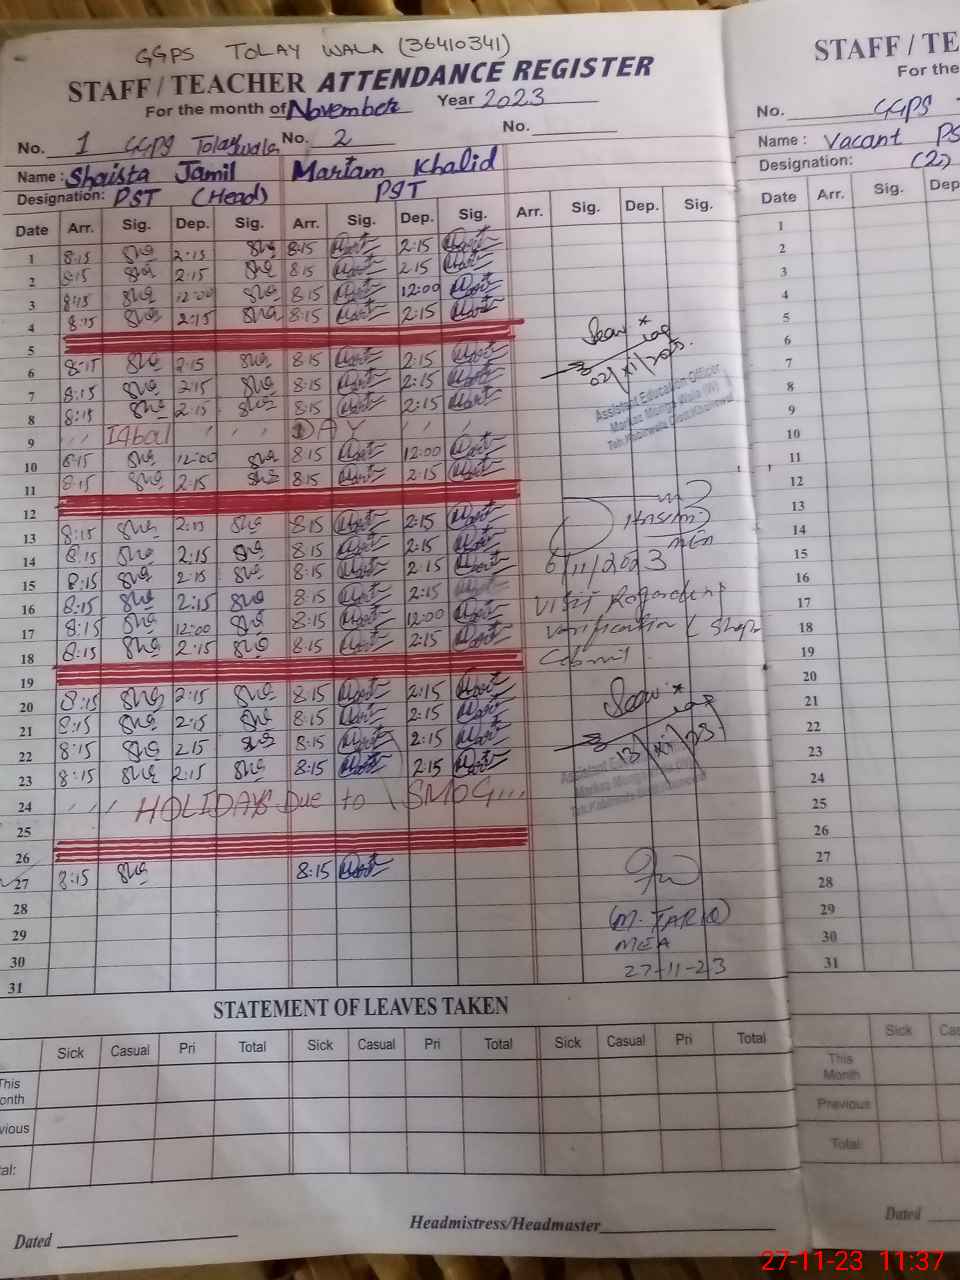 GGPS TOLAY WALA (36410341)
STAFF / TEACHER ATTENDANCE REGISTER
For the month of November Year 2023
No. 1 GGPS Tolaywala No. 2 No.
Name : Shaista Jamil Mariam Khalid
Designation: PST (Head) PST
Date Arr. Sig. Dep. Sig. Arr. Sig. Dep. Sig. Arr. Sig. Dep. Sig.
1 8:15 2:15 8:15 2:15
2 8:15 2:15 8:15 2:15
3 8:15 12:00 8:15 12:00
4 8:15 2:15 8:15 2:15
5
6 8:15 2:15 8:15 2:15
7 8:15 2:15 8:15 2:15
8 8:15 2:15 8:15 2:15
9 Iqbal DAY
10 8:15 12:00 8:15 12:00
11 8:15 2:15 8:15 2:15
12
13 8:15 2:15 8:15 2:15
14 8:15 2:15 8:15 2:15
15 8:15 2:15 8:15 2:15
16 8:15 2:15 8:15 2:15
17 8:15 12:00 8:15 12:00
18 8:15 2:15 8:15 2:15
19
20 8:15 2:15 8:15 2:15
21 8:15 2:15 8:15 2:15
22 8:15 2:15 8:15 2:15
23 8:15 2:15 8:15 2:15
24 HOLIDAYS Due to SMOG
25
26
27 8:15 8:15
28
29
30
31
02/XI/2023.
Assistant Education Officer
6/11/2023
Visit Regarding
verification
13/XI/23
Assistant Education Officer
(M. TARIQ)
MEA
27-11-23
STATEMENT OF LEAVES TAKEN
Sick Casual Pri Total Sick Casual Pri Total Sick Casual Pri Total
This
onth
vious
tal:
Dated
Headmistress/Headmaster
STAFF / TE
For the
No. GGPS
Name : Vacant PS
Designation: (2)
Date Arr. Sig. Dep
1
2
3
4
5
6
7
8
9
10
11
12
13
14
15
16
17
18
19
20
21
22
23
24
25
26
27
28
29
30
31
Sick Cas
This
Month
Previous
Total:
Dated
27-11-23 11:37